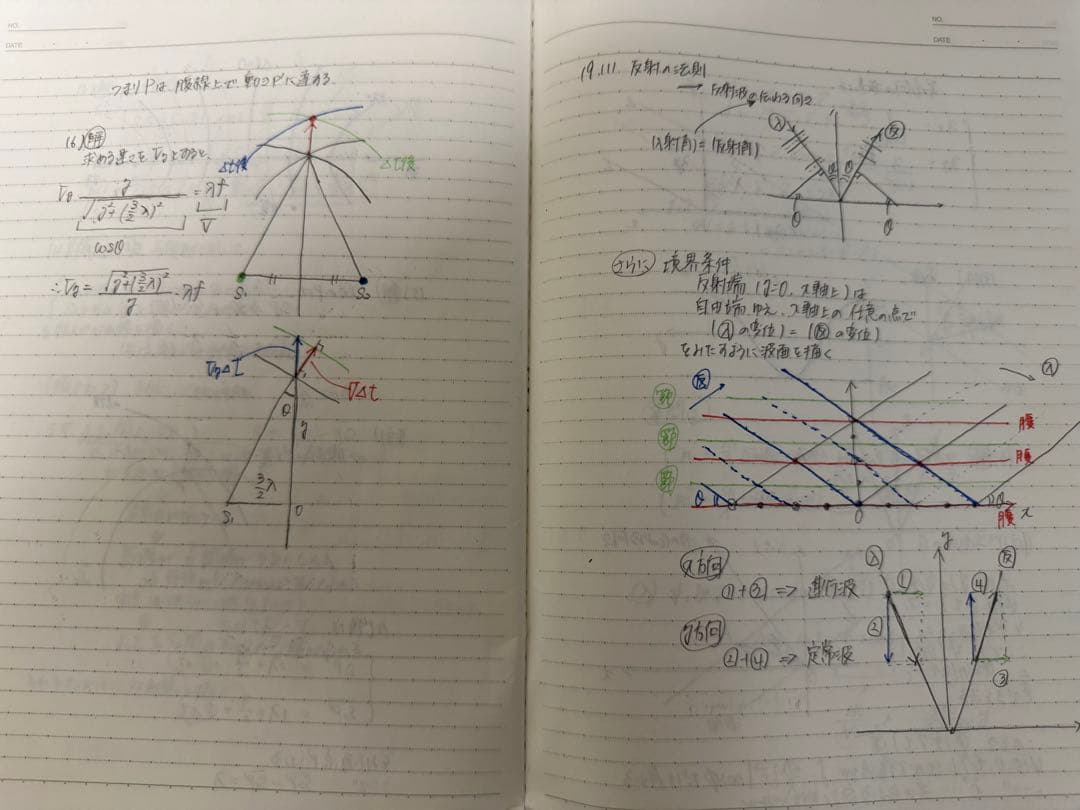 NO.
DATE
つまりPは、腹線上で動きP'に達する。
(6)別解
求める速さをVyとすると、
Vy y/√(y²+(3/2 λ)²) = λf
cosθ V
∴Vy = √(y²+(3/2 λ)²)/y ・λf
Δt後
Δt後
S₁
S₂
VyΔt
VΔt
θ
y
3/2 λ
S₁
O
NO.
DATE
19.111. 反射の法則
→ 反射波の伝わる向き
(入射角)=(反射角)
入
反
θ θ
θ
θ
さらに 境界条件
反射端(y=0、x軸上)は
自由端ゆえ、x軸上の任意の点で
(入の変位)=(反の変位)
をみたすように波面を描く
反
入
節
腹
節
腹
節
θ
O
θ
x
腹
x方向
①+③ => 進行波
y方向
②+④ => 定常波
y
入
①
②
反
④
③